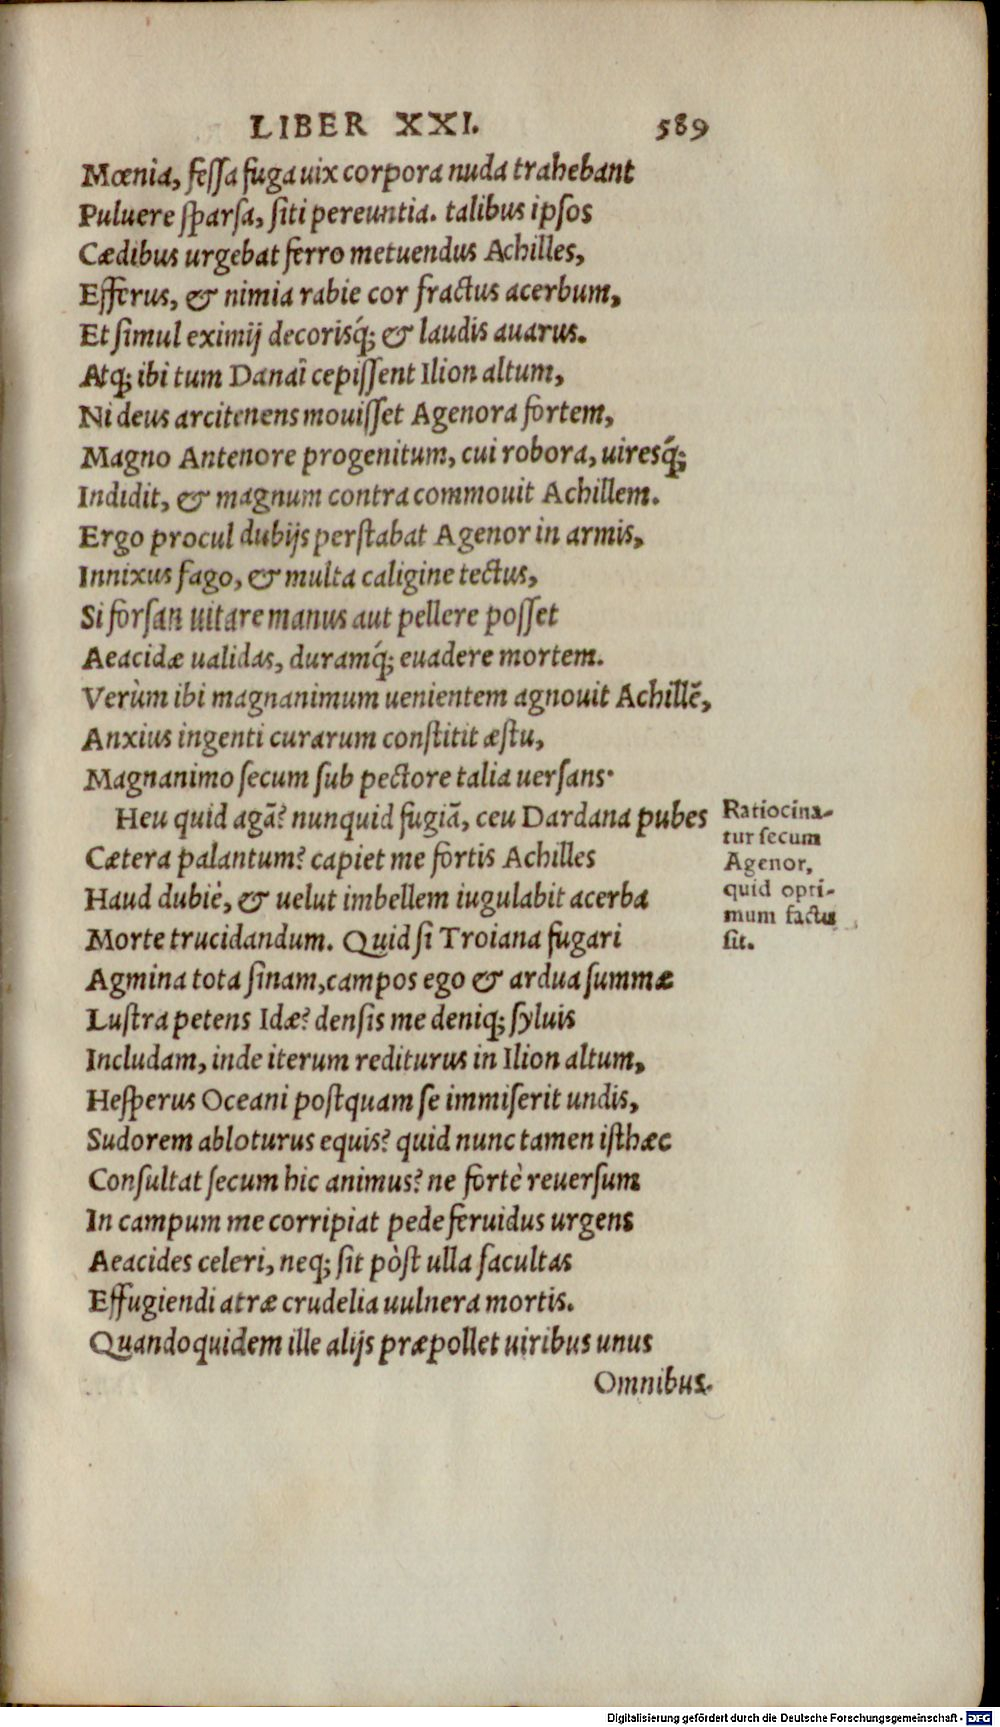 LIBER XXI. 589
Mœnia, fessa fuga uix corpora nuda trahebant
Puluere sparsa, siti pereuntia. talibus ipsos
Cædibus urgebat ferro metuendus Achilles,
Efferus, & nimia rabie cor fractus acerbum,
Et simul eximij decorisq́; & laudis auarus.
Atq; ibi tum Danaî cepissent Ilion altum,
Ni deus arcitenens mouisset Agenora fortem,
Magno Antenore progenitum, cui robora, uiresq́;
Indidit, & magnum contra commouit Achillem.
Ergo procul dubijs perstabat Agenor in armis,
Innixus fago, & multa caligine tectus,
Si forsan uitare manus aut pellere posset
Aeacidæ ualidas, duramq́; euadere mortem.
Verùm ibi magnanimum uenientem agnouit Achillē,
Anxius ingenti curarum constitit æstu,
Magnanimo secum sub pectore talia uersans.
Heu quid agā? nunquid fugiā, ceu Dardana pubes
Cætera palantum? capiet me fortis Achilles
Haud dubiè, & uelut imbellem iugulabit acerba
Morte trucidandum. Quid si Troiana fugari
Agmina tota sinam, campos ego & ardua summæ
Lustra petens Idæ? densis me deniq; syluis
Includam, inde iterum rediturus in Ilion altum,
Hesperus Oceani postquam se immiserit undis,
Sudorem abloturus equis? quid nunc tamen isthæc
Consultat secum hic animus? ne fortè reuersum
In campum me corripiat pede feruidus urgens
Aeacides celeri, neq; sit pòst ulla facultas
Effugiendi atræ crudelia uulnera mortis.
Quandoquidem ille alijs præpollet uiribus unus
Omnibus.
Ratiocina-
tur secum
Agenor,
quid opti-
mum factu
sit.
Digitalisierung gefördert durch die Deutsche Forschungsgemeinschaft - DFG